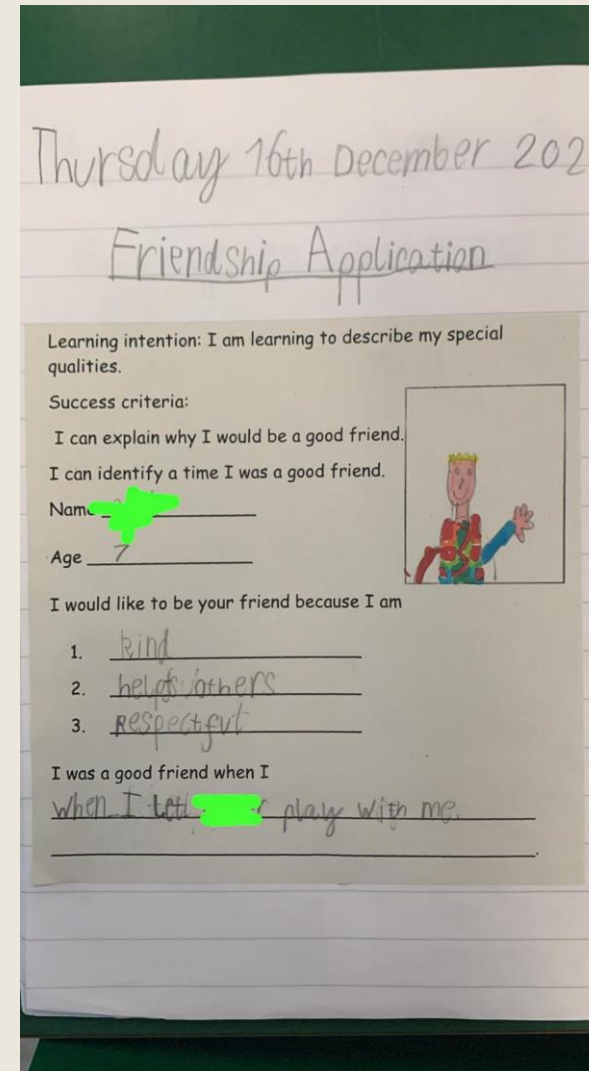 Thursday 16th December 202
Friendship Application
Learning intention: I am learning to describe my special
qualities.
Success criteria:
I can explain why I would be a good friend.
I can identify a time I was a good friend.
Name
Age 7
I would like to be your friend because I am
1. kind
2. helps others
3. Respectful
I was a good friend when I
when I let play with me.